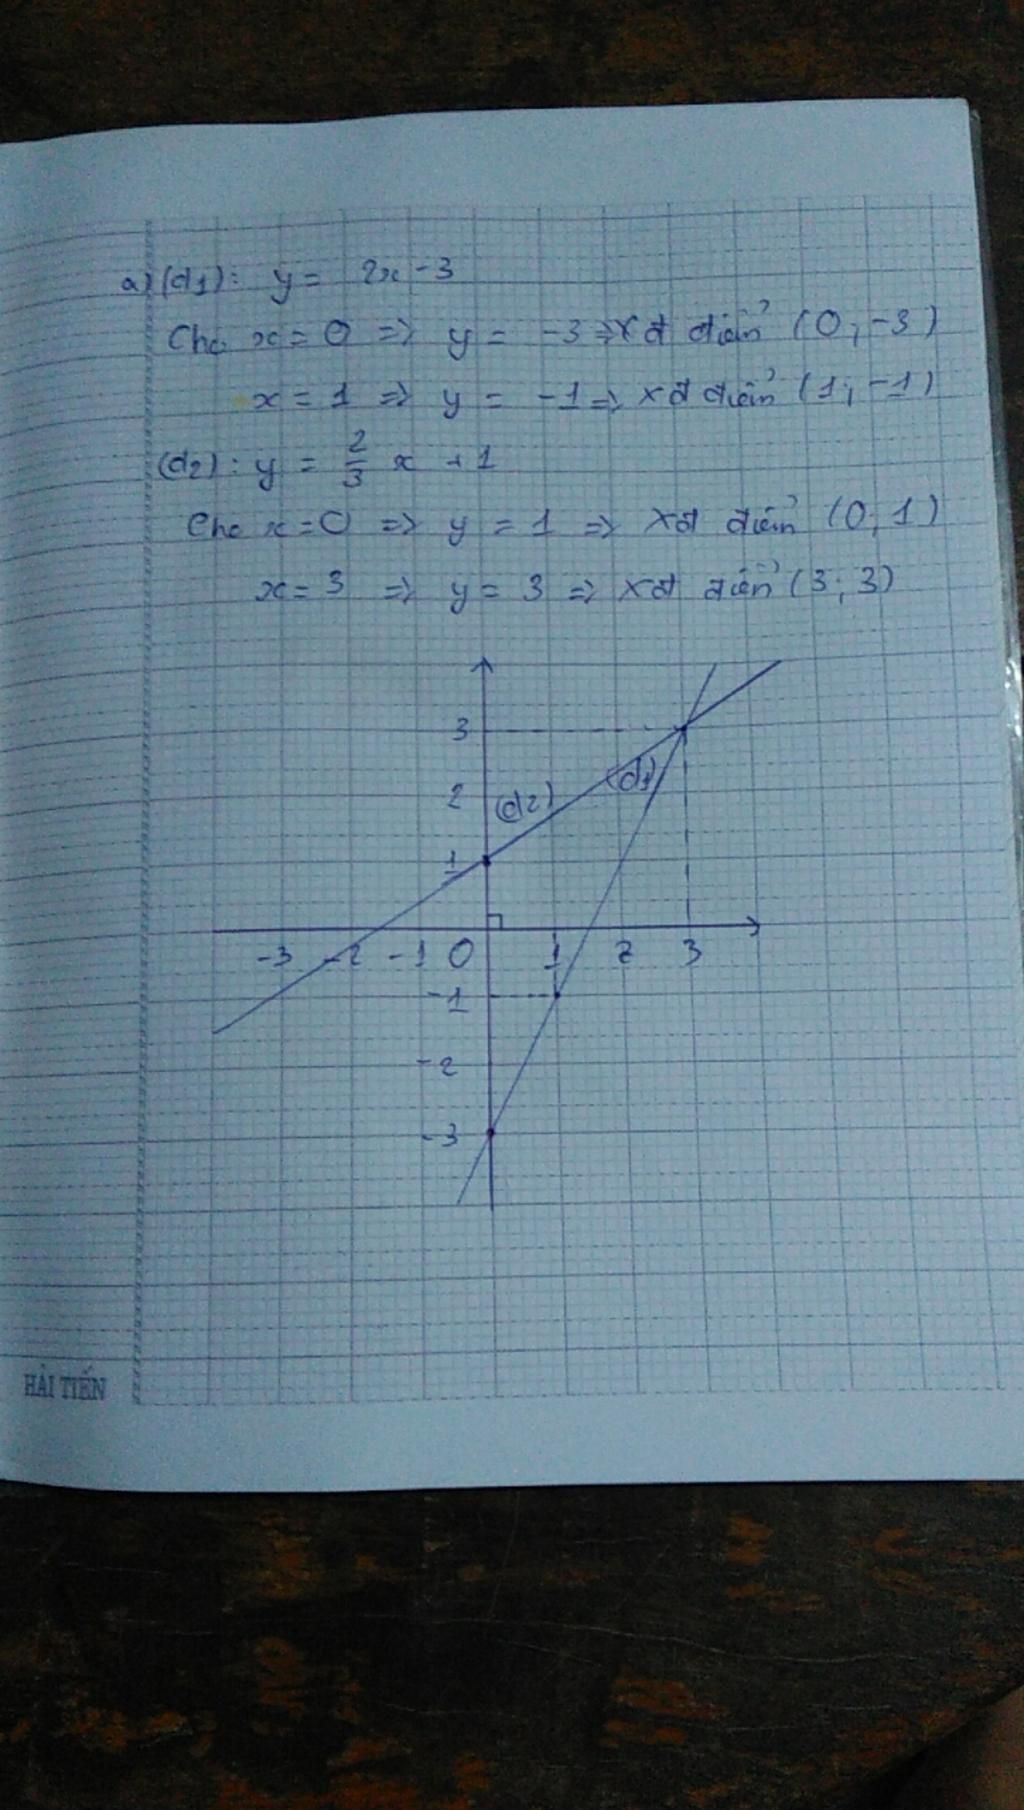 a) (d1): y = 2x - 3
Cho x = 0 => y = -3 => xđ điểm (0; -3)
x = 1 => y = -1 => xđ điểm (1; -1)
(d2): y = 2/3 x + 1
Cho x = 0 => y = 1 => xđ điểm (0; 1)
x = 3 => y = 3 => xđ điểm (3; 3)
3
(d1)
2
(d2)
1
-3 -2 -1 0 1 2 3
-1
-2
-3
HẢI TIẾN